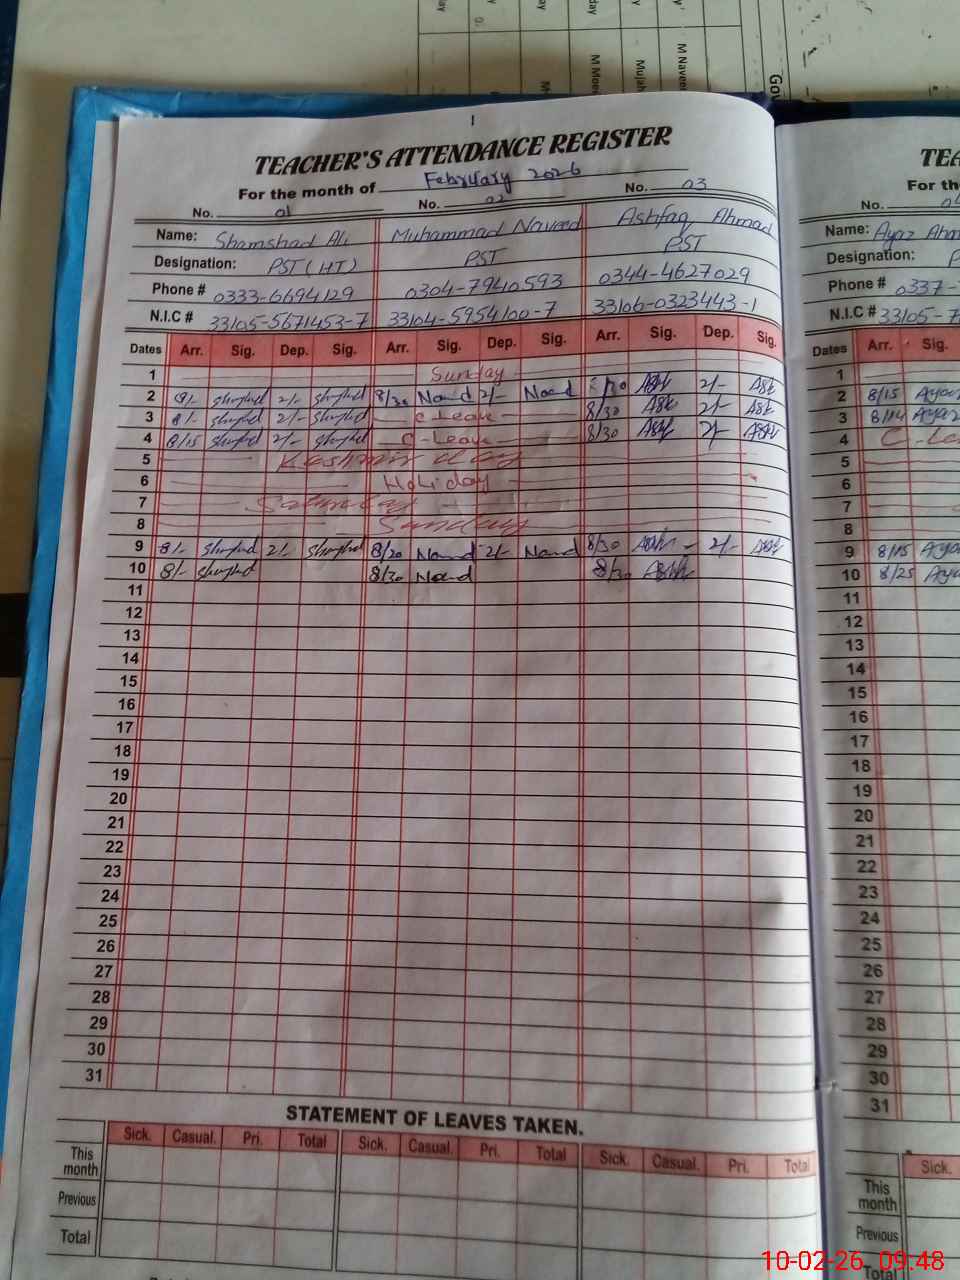 M Naveed
Gov
1
TEACHER'S ATTENDANCE REGISTER
For the month of February 2026
No. 01 No. 02 No. 03
Name: Shamshad Ali Muhammad Naveed Ashfaq Ahmad
Designation: PST (HT) PST PST
Phone # 0333-6694129 0304-7940593 0344-4627029
N.I.C # 33105-5671453-7 33104-5954100-7 33106-0323443-1
Dates Arr. Sig. Dep. Sig. Arr. Sig. Dep. Sig. Arr. Sig. Dep. Sig.
1 Sunday
2 8/- 2/- 8/30 2/- 2/-
3 8/- 2/- C-Leave 8/30 2/-
4 8/15 2/- C-Leave 8/30 2/-
5 Kashmir day
6 Holiday
7 Saturday
8 Sunday
9 8/- 2/- 8/20 2/- 8/30 2/-
10 8/- 8/30 8/30
11
12
13
14
15
16
17
18
19
20
21
22
23
24
25
26
27
28
29
30
31
STATEMENT OF LEAVES TAKEN.
Sick. Casual. Pri. Total Sick. Casual. Pri. Total Sick. Casual. Pri. Total
This month
Previous
Total
TEA
For th
No. 04
Name: Ayaz Ahm
Designation: P
Phone # 0337-
N.I.C # 33105-7
Dates Arr. Sig.
1
2 8/15 Ayaz
3 8/14 Ayaz
4 C-Le
5
6
7
8
9 8/15 Aya
10 8/25 Aya
11
12
13
14
15
16
17
18
19
20
21
22
23
24
25
26
27
28
29
30
31
Sick.
This month
Previous
Total
10-02-26 09:48